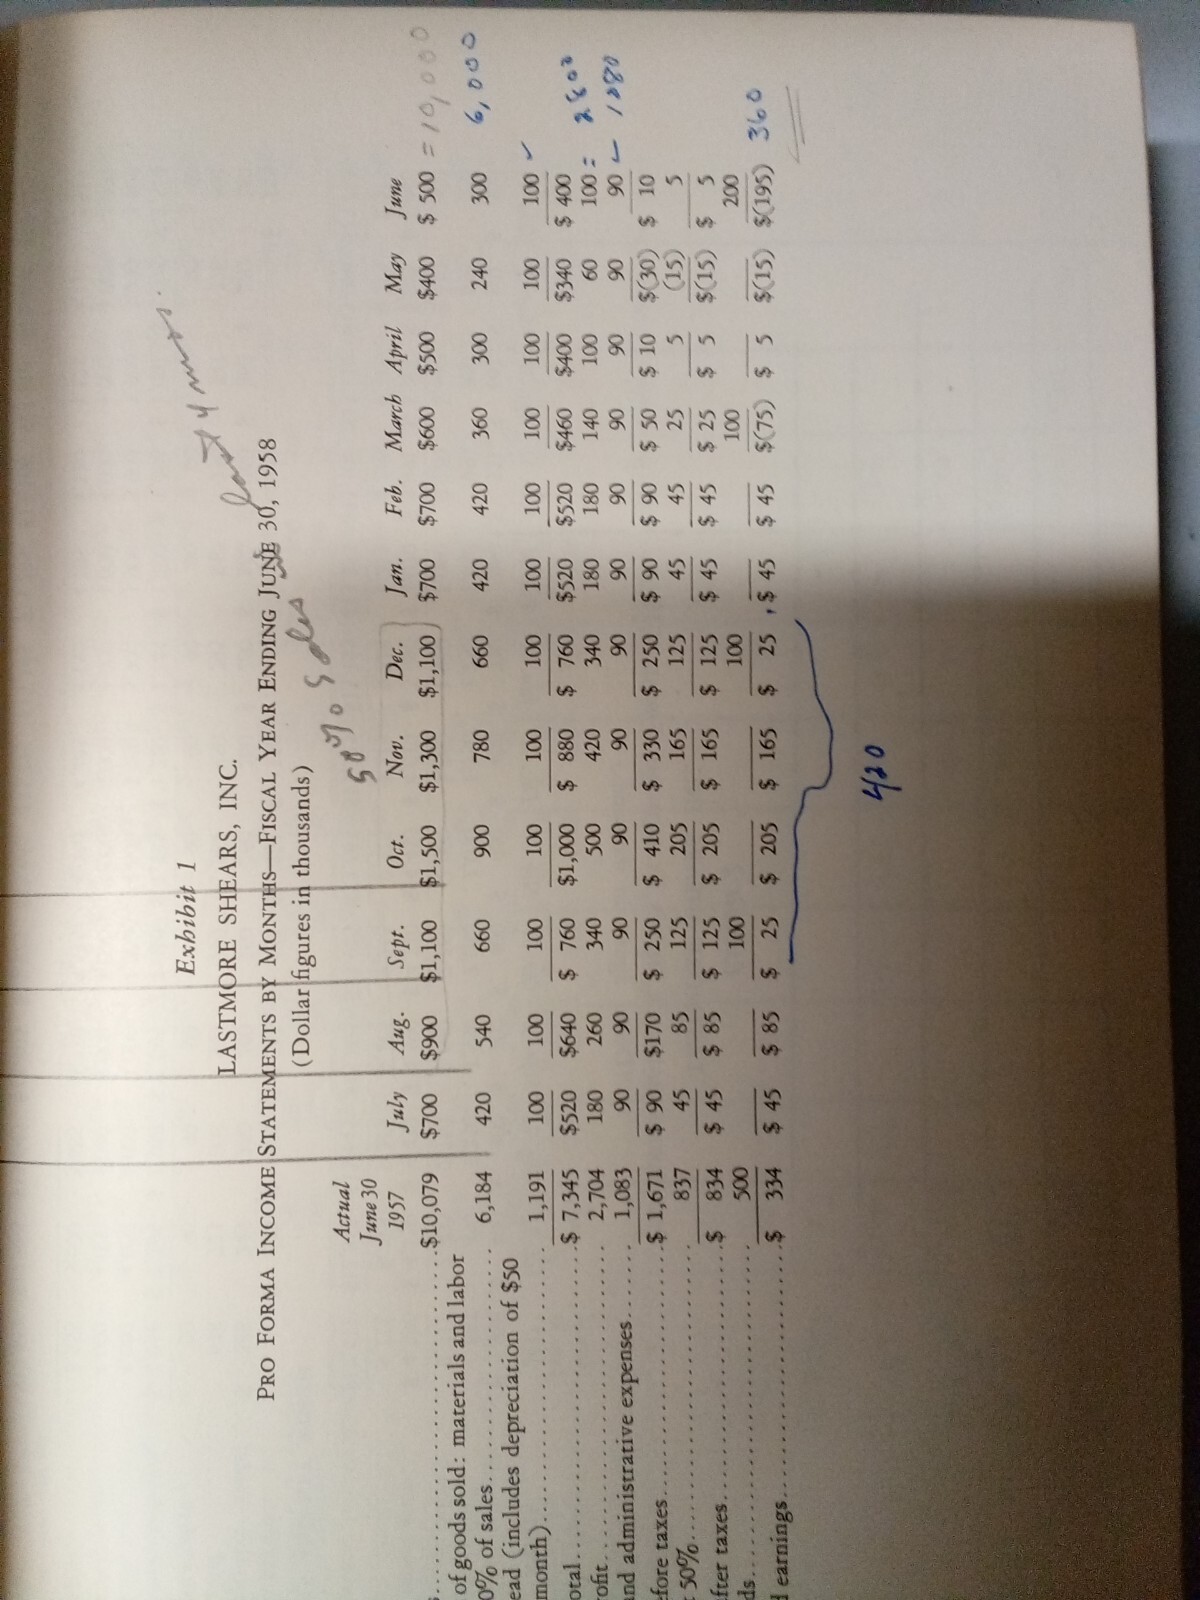 Exhibit 1
LASTMORE SHEARS, INC.
PRO FORMA INCOME STATEMENTS BY MONTHS—FISCAL YEAR ENDING JUNE 30, 1958
(Dollar figures in thousands)
Actual
June 30
1957 July Aug. Sept. Oct. Nov. Dec. Jan. Feb. March April May June
$10,079 $700 $900 $1,100 $1,500 $1,300 $1,100 $700 $700 $600 $500 $400 $ 500 = 10,000
of goods sold: materials and labor
0% of sales 6,184 420 540 660 900 780 660 420 420 360 300 240 300 6,000
ead (includes depreciation of $50
month) 1,191 100 100 100 100 100 100 100 100 100 100 100 100 ✓
otal $ 7,345 $520 $640 $ 760 $1,000 $ 880 $ 760 $520 $520 $460 $400 $340 $ 400
ofit 2,704 180 260 340 500 420 340 180 180 140 100 60 100 = 2800
nd administrative expenses 1,083 90 90 90 90 90 90 90 90 90 90 90 90 1080
efore taxes $ 1,671 $ 90 $170 $ 250 $ 410 $ 330 $ 250 $ 90 $ 90 $ 50 $ 10 $(30) $ 10
50% 837 45 85 125 205 165 125 45 45 25 5 (15) 5
fter taxes $ 834 $ 45 $ 85 $ 125 $ 205 $ 165 $ 125 $ 45 $ 45 $ 25 $ 5 $(15) $ 5
ds 500 100 100 100 200
earnings $ 334 $ 45 $ 85 $ 25 $ 205 $ 165 $ 25 $ 45 $ 45 $(75) $ 5 $(15) $(195) 360
420